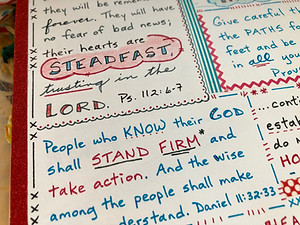 they will be remem
forever. They will have
no fear of bad news;
their hearts are
STEADFAST,
trusting in the
LORD. Ps. 112:6-7
Give careful
the PATHS fo
feet and be
in all you
Prov
People who KNOW their GOD
shall STAND FIRM*
and
take action. And the wise
among the people shall make
derstand. Daniel 11:32-33
...cont
estab
do n
HO